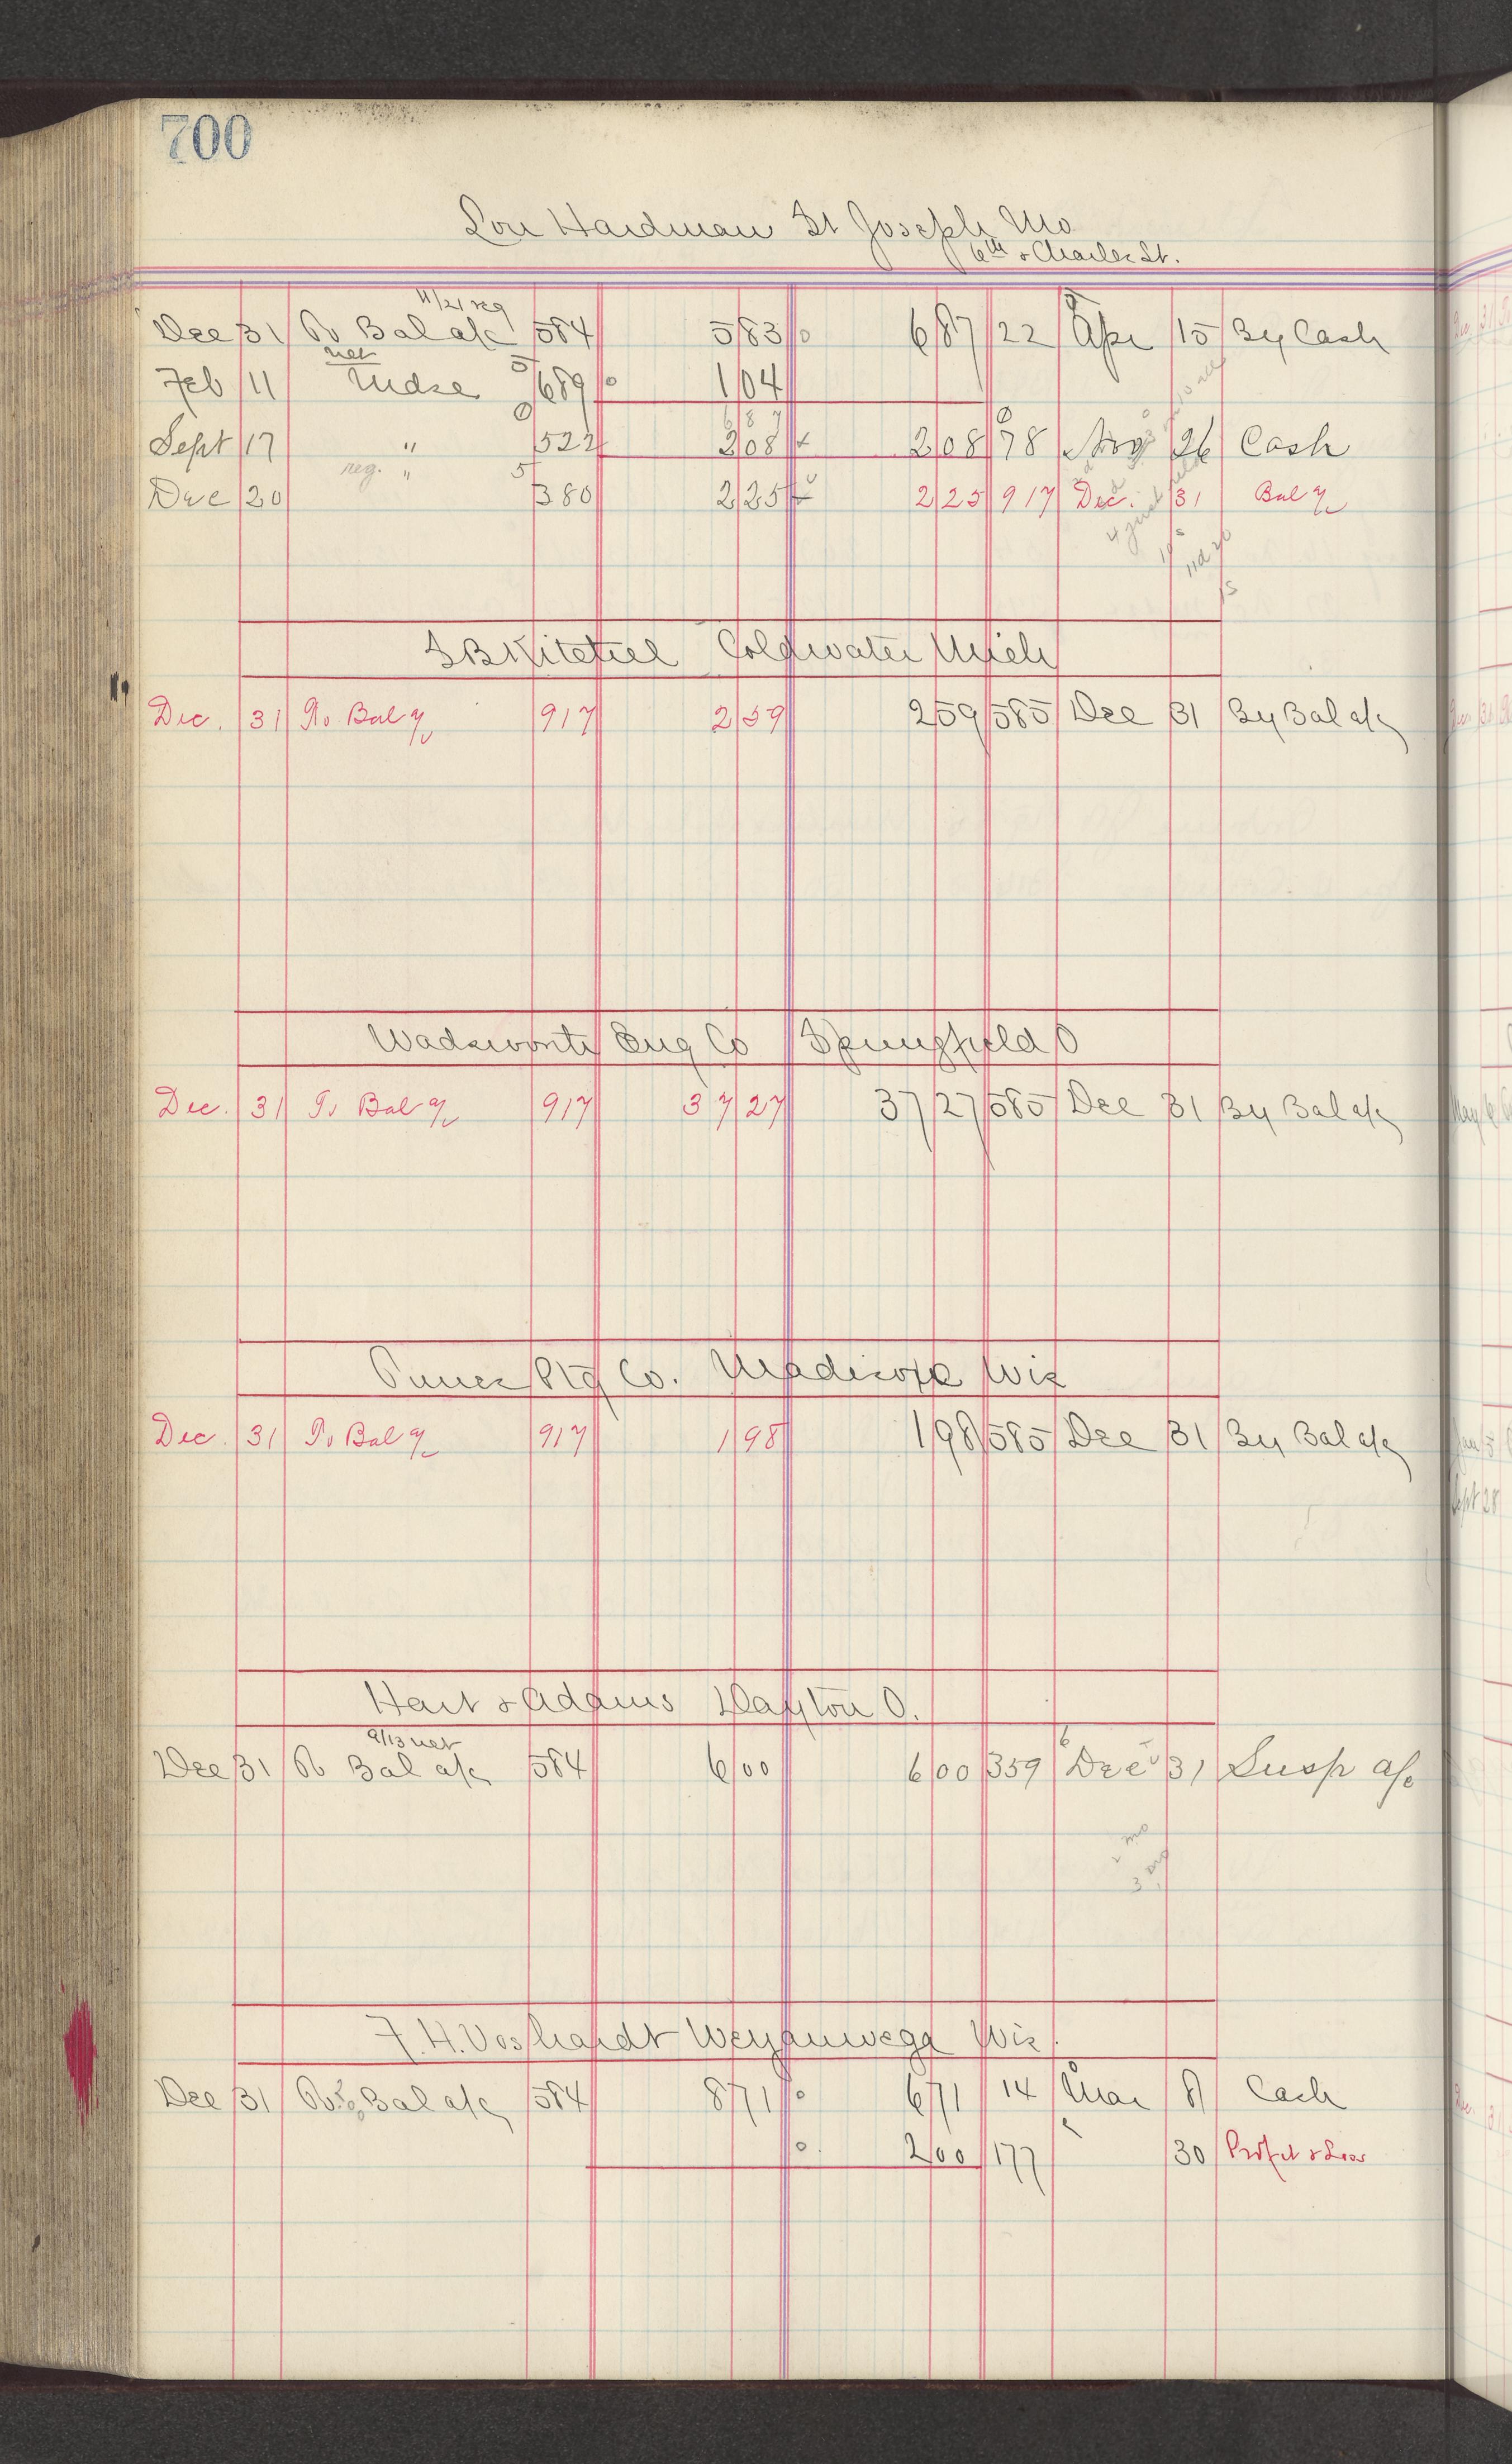 700
Lou Hardman St Joseph Mo
6th & Charles St.
11/21 reg
Dec 31 To Bal a/c 584 5 83 0 6 87 22 Apr 15 By Cash
net
Feb 11 Mdse 689 0 1 04
6 8 7
Sept 17 " 522 2 08 x 2 08 78 Nov 26 Cash
reg.
Dec 20 " 380 2 25 2 25 917 Dec. 31 Bal %
Coldwater Mich
Dec. 31 To Bal % 917 2 59 2 59 585 Dec 31 By Bal a/c
Wadsworth Eng Co Springfield O
Dec. 31 To Bal % 917 37 27 37 27 585 Dec 31 By Bal a/c
Ptg Co. Madison Wis
Dec. 31 To Bal % 917 1 98 1 98 585 Dec 31 By Bal a/c
Hart & Adams Dayton O.
9/13 net
Dec 31 To Bal a/c 584 6 00 6 00 359 Dec 31 Susp a/c
2 mo
3 mo
F. H. Voshardt Weyauwega Wis.
Dec 31 To Bal a/c 584 8 71 0 6 71 14 Mar 8 Cash
0 2 00 177 30 Profit & Loss